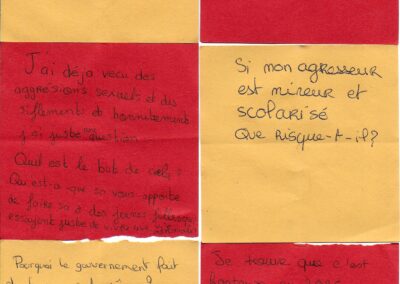 J'ai déjà vecu des
aggresions sexuels et des
siflements et honnitements
j'ai juste une question
Quel est le but de cela ?
Qu'est-ce que sa vous apporte
de faire sa à des jeunes
essayant juste de vivre
Si mon agresseur
est mineur et
scolarisé
Que risque-t-il ?
Pourquoi le gouvernement fait
Je trouve que c'est